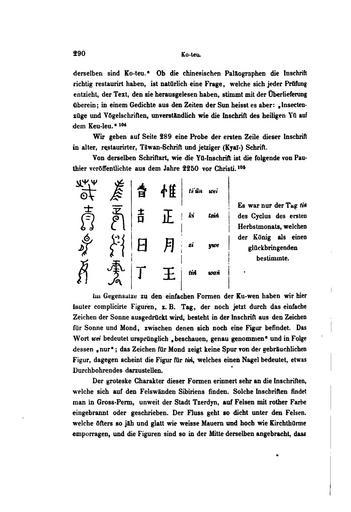 290
Ko-teu.
derselben sind Ko-teu.* Ob die chinesischen Paläographen die Inschrift
richtig restaurirt haben, ist natürlich eine Frage, welche sich jeder Prüfung
entzieht, der Text, den sie herausgelesen haben, stimmt mit der Überlieferung
überein; in einem Gedichte aus den Zeiten der Sun heisst es aber: „Insecten-
züge und Vögelschriften, unverständlich wie die Inschrift des heiligen Yü auf
dem Keu-leu." 104
Wir geben auf Seite 289 eine Probe der ersten Zeile dieser Inschrift
in alter, restaurirter, Tšwan-Schrift und jetziger (Kyaĭ-) Schrift.
Von derselben Schriftart, wie die Yü-Inschrift ist die folgende von Pau-
thier veröffentlichte aus dem Jahre 2250 vor Christi. 105
春 惟 wei
吉 正 ki
日 月
丁 王 tiṅ waṅ
Es war nur der Tag tiṅ
des Cyclus des ersten
Herbstmonats, welchen
der König als einen
glückbringenden
bestimmte.
Im Gegensatze zu den einfachen Formen der Ku-wen haben wir hier
lauter complicirte Figuren, z. B. Tag, der noch jetzt durch das einfache
Zeichen der Sonne ausgedrückt wird, besteht in der Inschrift aus den Zeichen
für Sonne und Mond, zwischen denen sich noch eine Figur befindet. Das
Wort wei bedeutet ursprünglich „beschauen, genau genommen" und in Folge
dessen „nur"; das Zeichen für Mond zeigt keine Spur von der gebräuchlichen
Figur, dagegen scheint die Figur für tiṅ, welches einen Nagel bedeutet, etwas
Durchbohrendes darzustellen.
Der groteske Charakter dieser Formen erinnert sehr an die Inschriften,
welche sich auf den Felswänden Sibiriens finden. Solche Inschriften findet
man in Gross-Perm, unweit der Stadt Tzerdyn, auf Felsen mit rother Farbe
eingebrannt oder geschrieben. Der Fluss geht so dicht unter den Felsen.
welche öfters so jäh und glatt wie weisse Mauern und hoch wie Kirchthürme
emporragen, und die Figuren sind so in der Mitte derselben angebracht, dass